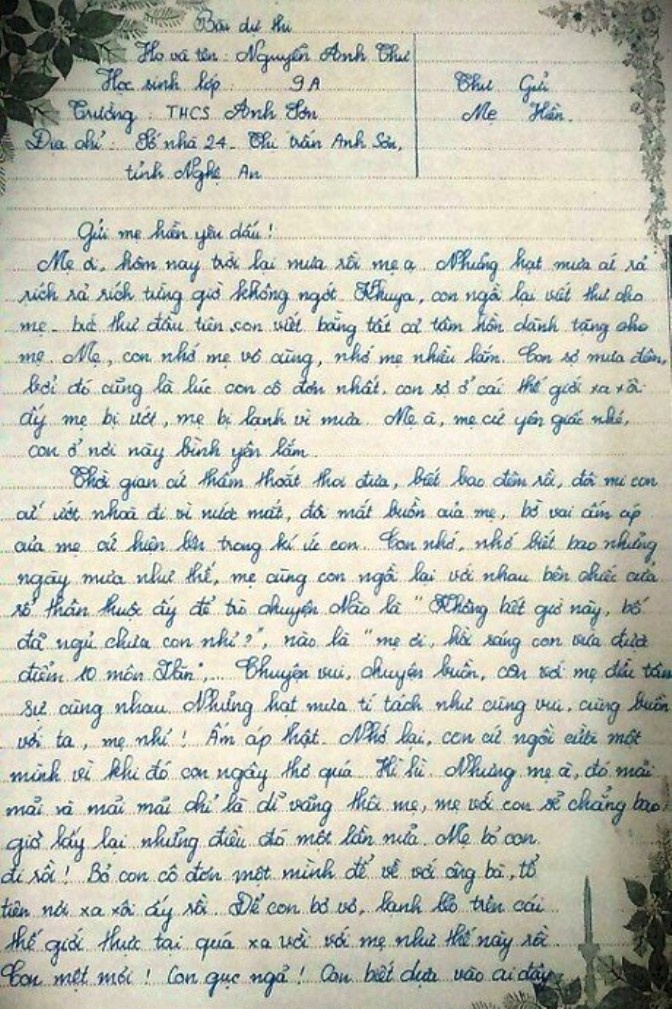 Bài dự thi
Họ và tên : Nguyễn Anh Thư
Học sinh lớp : 9A
Thư Gửi
Trường : THCS Anh Sơn
Mẹ Hiền.
Địa chỉ : Số nhà 24 - Thị trấn Anh Sơn,
tỉnh Nghệ An
Gửi mẹ hiền yêu dấu !
Mẹ ơi, hôm nay trời lại mưa rồi mẹ ạ. Những hạt mưa cứ rả
rích rả rích từng giờ không ngớt. Khuya, con ngồi lại viết thư cho
mẹ - bức thư đầu tiên con viết bằng tất cả tâm hồn dành tặng cho
mẹ. Mẹ, con nhớ mẹ vô cùng, nhớ mẹ nhiều lắm. Con sợ mưa đêm,
bởi đó cũng là lúc con cô đơn nhất, con sợ ở cái thế giới xa xôi
ấy mẹ bị ướt, mẹ bị lạnh vì mưa. Mẹ à, mẹ cứ yên giấc nhé,
con ở nơi này bình yên lắm.
Thời gian cứ thấm thoắt thoi đưa, biết bao đêm rồi, đôi mi con
cứ ướt nhoà đi vì nước mắt, đôi mắt buồn của mẹ, bờ vai ấm áp
của mẹ cứ hiện lên trong kí ức con. Con nhớ, nhớ biết bao những
ngày mưa như thế, mẹ cùng con ngồi lại với nhau bên chiếc cửa
sổ thân thuộc ấy để trò chuyện. Nào là " Không biết giờ này, bố
đã ngủ chưa con nhỉ ?", nào là " mẹ ơi, hồi sáng con vừa được
điểm 10 môn Văn",... Chuyện vui, chuyện buồn, con với mẹ đều tâm
sự cùng nhau. Những hạt mưa tí tách như cũng vui, cũng buồn
với ta, mẹ nhỉ ! Ấm áp thật. Nhớ lại, con cứ ngồi cười một
mình vì khi đó con ngây thơ quá. Hì hì. Nhưng mẹ à, đó mãi
mãi và mãi mãi chỉ là dĩ vãng thôi mẹ, mẹ với con sẽ chẳng bao
giờ lấy lại những điều đó một lần nữa. Mẹ bỏ con
đi rồi ! Bỏ con cô đơn một mình để về với ông bà, tổ
tiên nơi xa xôi ấy rồi. Để con bơ vơ, lạnh lẽo trên cái
thế giới thực tại quá xa vời với mẹ như thế này rồi.
Con mệt mỏi ! Con gục ngã ! Con biết dựa vào ai đây